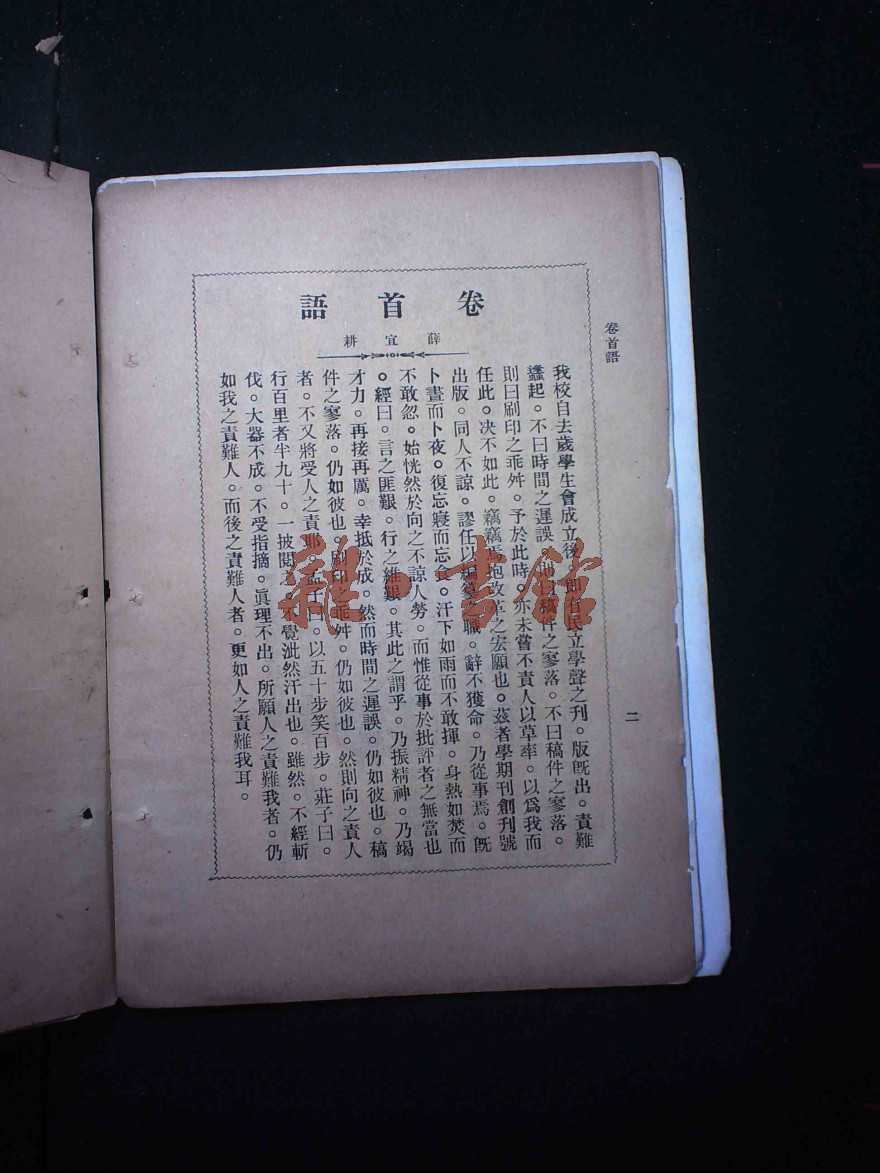 卷首語
二
卷首語
薛宜耕
我校自去歲學生會成立後。即有民立學聲之刊。版旣出。責難
蠭起。不曰時間之遲誤。則曰稿件之寥落。不曰稿件之寥落。
則曰刷印之乖舛。予於此時。亦未嘗不責人以草率。以爲我而
任此。决不如此。竊竊焉抱改革之宏願也。茲者學期刊創刊號
出版。同人不諒。謬任以編纂之職。辭不獲命。乃從事焉。旣
卜晝而卜夜。復忘寢而忘食。汗下如雨而不敢揮。身熱如焚而
不敢忽。始恍然於向之不諒人勞。而惟從事於批評者之無當也
。經曰。言之匪艱。行之維艱。其此之謂乎。乃振精神。乃竭
才力。再接再厲。幸抵於成。然而時間之遲誤。仍如彼也。稿
件之寥落。仍如彼也。刷印之乖舛。仍如彼也。然則向之責人
者。不又將受人之責耶。孟子曰。以五十步笑百步。莊子曰。
行百里者半九十。一披閱之。不覺泚然汗出也。雖然。不經斬
伐。大器不成。不受指摘。眞理不出。所願人之責難我者。仍
如我之責難人。而後之責難人者。更如人之責難我耳。
雜書館